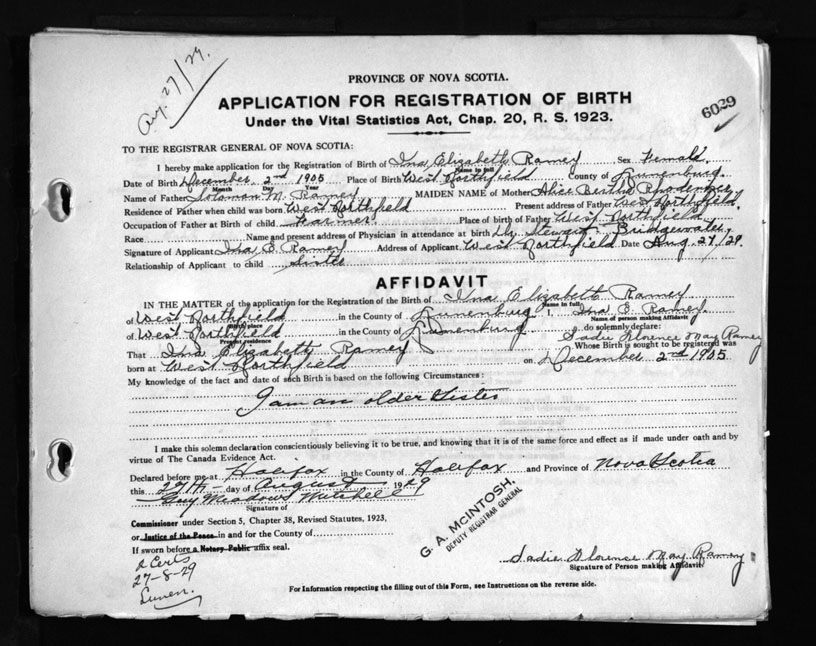 Aug. 27/29.
PROVINCE OF NOVA SCOTIA.
APPLICATION FOR REGISTRATION OF BIRTH
6029
Under the Vital Statistics Act, Chap. 20, R. S. 1923.
TO THE REGISTRAR GENERAL OF NOVA SCOTIA:
I hereby make application for the Registration of Birth of Ina Elizabeth Ramey Sex Female.
Name in full
Date of Birth December 2nd 1905 Place of Birth West Northfield County of Lunenburg.
Month Day Year
Name of Father Soloman M. Ramey MAIDEN NAME of Mother Alice Bertha
Residence of Father when child was born West Northfield Present address of Father West Northfield.
Occupation of Father at Birth of child Farmer Place of birth of Father West Northfield.
Race Name and present address of Physician in attendance at birth Dr Stewart Bridgewater.
Signature of Applicant Ina E Ramey Address of Applicant West Northfield Date Aug. 27/29.
Relationship of Applicant to child Sister
AFFIDAVIT
IN THE MATTER of the application for the Registration of the Birth of Ina Elizabeth Ramey
Name in full
of West Northfield in the County of Lunenburg I, Ina E. Ramey.
Birth place Name of person making Affidavit
of West Northfield in the County of Lunenburg do solemnly declare:
Present residence Sadie Florence May Ramey
That Ina Elizabeth Ramey Whose Birth is sought to be registered was
born at West Northfield on December 2nd 1905
My knowledge of the fact and date of such Birth is based on the following Circumstances:
I am an older Sister
I make this solemn declaration conscientiously believing it to be true, and knowing that it is of the same force and effect as if made under oath and by
virtue of The Canada Evidence Act.
Declared before me at Halifax in the County of Halifax and Province of Nova Scotia
this 27th day of August 1929
Guy Meadows Mitchell
Signature of
Commissioner under Section 5, Chapter 38, Revised Statutes, 1923,
or Justice of the Peace in and for the County of
If sworn before a Notary Public affix seal.
G. A. McINTOSH,
DEPUTY REGISTRAR GENERAL
2 Certs
27-8-29
Lunen.
Sadie Florence May Ramey
Signature of Person making Affidavit
For Information respecting the filling out of this Form, see Instructions on the reverse side.